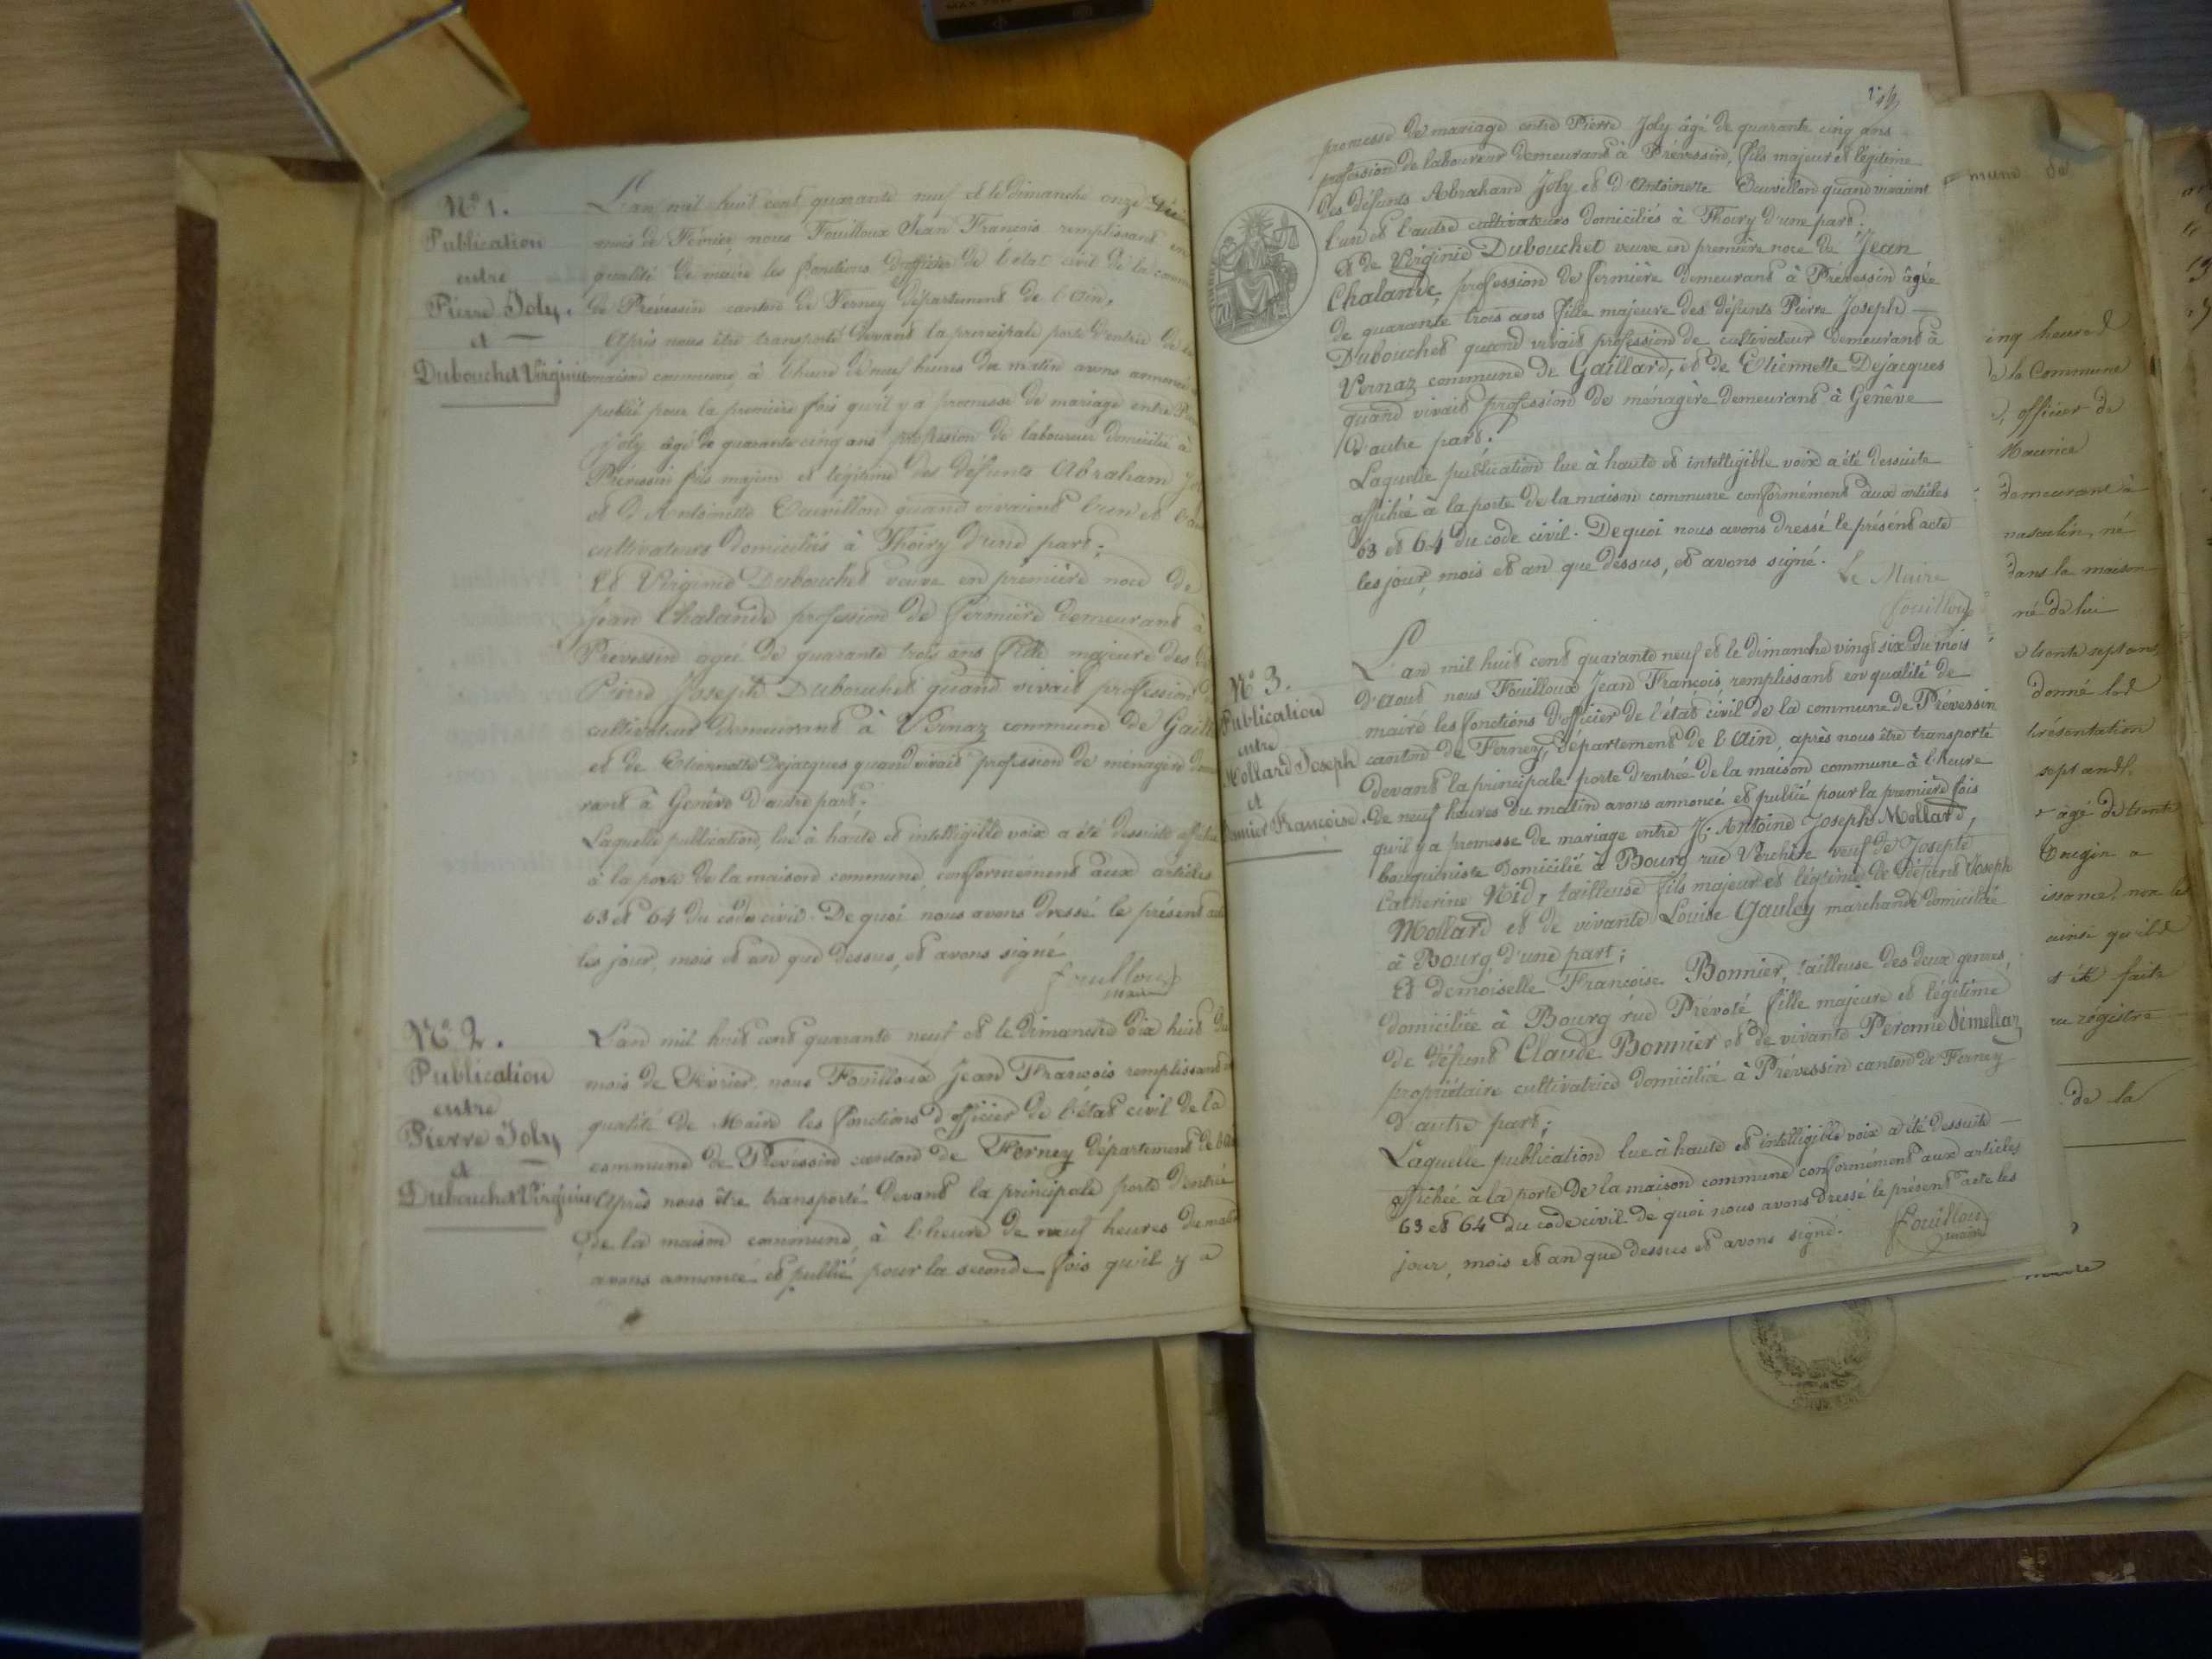 N° 1.
Publication
entre
Pierre Joly,
et
Dubouchet Virginie
L'an mil huit cent quarante neuf et le dimanche onze
mois de Février nous Fouilloux Jean François remplissant en
qualité de maire les fonctions d'officier de l'état civil de la
de Prévessin canton de Ferney département de l'Ain,
Après nous être transporté devant la principale porte d'entrée de
maison commune, à l'heure de neuf heures du matin avons annoncé
publié pour la première fois qu'il y a promesse de mariage entre
Joly âgé de quarante cinq ans profession de laboureur domicilié à
Prévessin fils majeur et légitime des défunts Abraham
et d'Antoinette Cuvillon quand vivaient l'un et
cultivateurs domiciliés à Thoiry d'une part;
Et Virginie Dubouchet veuve en première noce de
Jean Chalande profession de fermière demeurant à
Prévessin agée de quarante trois ans fille majeure des
Pierre Joseph Dubouchet quand vivait profession
cultivateur demeurant à Vernaz commune de
et de Etiennette Dejacques quand vivait profession de ménagère
rant à Genêve d'autre part;
Laquelle publication, lue à haute et intelligible voix a été dessuite
à la porte de la maison commune, conformément aux articles
63 et 64 du code civil. De quoi nous avons dressé le présent
les jour, mois et an que dessus, et avons signé
Fouilloux
maire
N° 2.
Publication
entre
Pierre Joly
et
Dubouchet Virginie
L'an mil huit cent quarante neuf et le dimanche dix huit du
mois de Février, nous Fouilloux Jean François remplissant
qualité de Maire les fonctions d'officier de l'état civil de la
commune de Prévessin canton de Ferney département de
Après nous être transporté devant la principale porte d'entrée
de la maison commune, à l'heure de neuf heures du
avons annoncé et publié pour la seconde fois qu'il y a
promesse de mariage entre Pierre Joly âgé de quarante cinq ans
profession de laboureur demeurant à Prévessin, fils majeur et légitime
des défunts Abraham Joly et d'Antoinette Cuvillon quand vivaient
l'un et l'autre cultivateurs domiciliés à Thoiry d'une part:
Et de Virginie Dubouchet veuve en première noce de Jean
Chalande, profession de fermière demeurant à Prévessin âgée
de quarante trois ans fille majeure des défunts Pierre Joseph
Dubouchet quand vivait profession de cultivateur demeurant à
Vernaz commune de Gaillard, et de Etiennette Dejacques
quand vivait profession de ménagère demeurant à Genêve
d'autre part.
Laquelle publication lue à haute et intelligible voix a été dessuite
affichée à la porte de la maison commune conformément aux articles
63 et 64 du code civil. De quoi nous avons dressé le présent acte
les jour, mois et an que dessus, et avons signé.
Le Maire
Fouilloux
N° 3.
Publication
entre
Mollard Joseph
et
Françoise.
L'an mil huit cent quarante neuf et le dimanche vingt six du mois
d'Aout nous Fouilloux Jean François, remplissant en qualité de
maire les fonctions d'officier de l'état civil de la commune de Prévessin
canton de Ferney, département de l'Ain, après nous être transporté
devant la principale porte d'entrée de la maison commune à l'heure
de neuf heures du matin avons annoncé et publié pour la première fois
qu'il y a promesse de mariage entre Antoine Joseph Mollard,
bouquiniste domicilié à Bourg rue Verchère veuf de Josepte
Catherine Nid, tailleuse fils majeur et légitime de défunt Joseph
Mollard et de vivante Louise Gauley marchande domiciliée
à Bourg d'une part;
Et demoiselle Françoise Bonnier, tailleuse des deux genres,
domiciliée à Bourg rue Prévoté fille majeure et légitime
de défunt Claude Bonnier et de vivante Peronne Dimellaz
propriétaire cultivatrice domiciliée à Prévessin canton de Ferney
d'autre part;
Laquelle publication lue à haute et intelligible voix a été dessuite
affichée à la porte de la maison commune conformément aux articles
63 et 64 du code civil de quoi nous avons dressé le présent acte les
jour, mois et an que dessus et avons signé.
Fouilloux
maire
heures
de la Commune
officier de
Maurice
demeurant à
masculin, né
dans la maison
né de lui
trente sept ans
donné les
présentation
sept ans
âgé de trente
Gugin a
ainsi qu'il
été faite
registre
de la